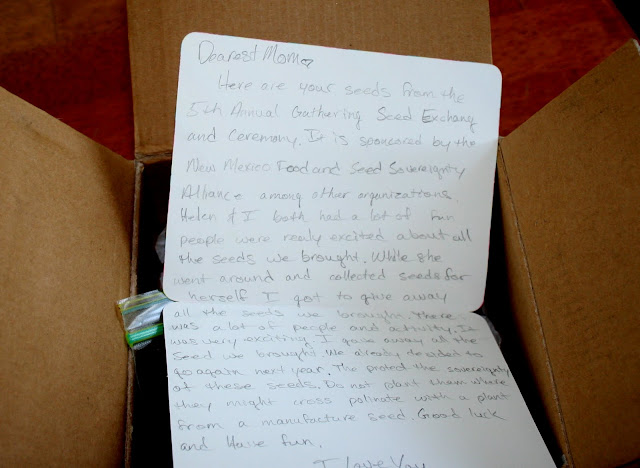 Dearest Mom♡
Here are your seeds from the
5th Annual Gathering Seed Exchang
and Ceremony. It is sponcered by the
New Mexico Food and Seed Sovereignty
Alliance among other organizations.
Helen & I both had a lot of fun
people were realy excited about all
the seeds we brought. While she
went around and collected seeds for
herself I got to give away
all the seeds we brought. There
was a lot of people and activity. It
was very exciting I gave away all the
seed we brought. We already decided to
go again next year. The protect the sovereignty
of these seeds. Do not plant tham where
they might cross polinate with a plant
from a manufacture seed. Good luck
and Have fun.
I love You